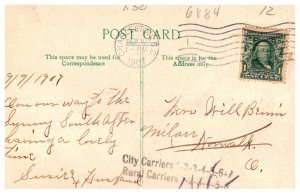 1150
6884
12
POST CARD
This space may be used for
Correspondence
This space is for the
Address
9/9/1907
On our way to the
Sunny South After
having a lovely
time
Susie & Husband
Miss Will Bermin
Milan
Norwalk
O.
City Carriers 1-2-3-4-5-6-7
Rural Carriers